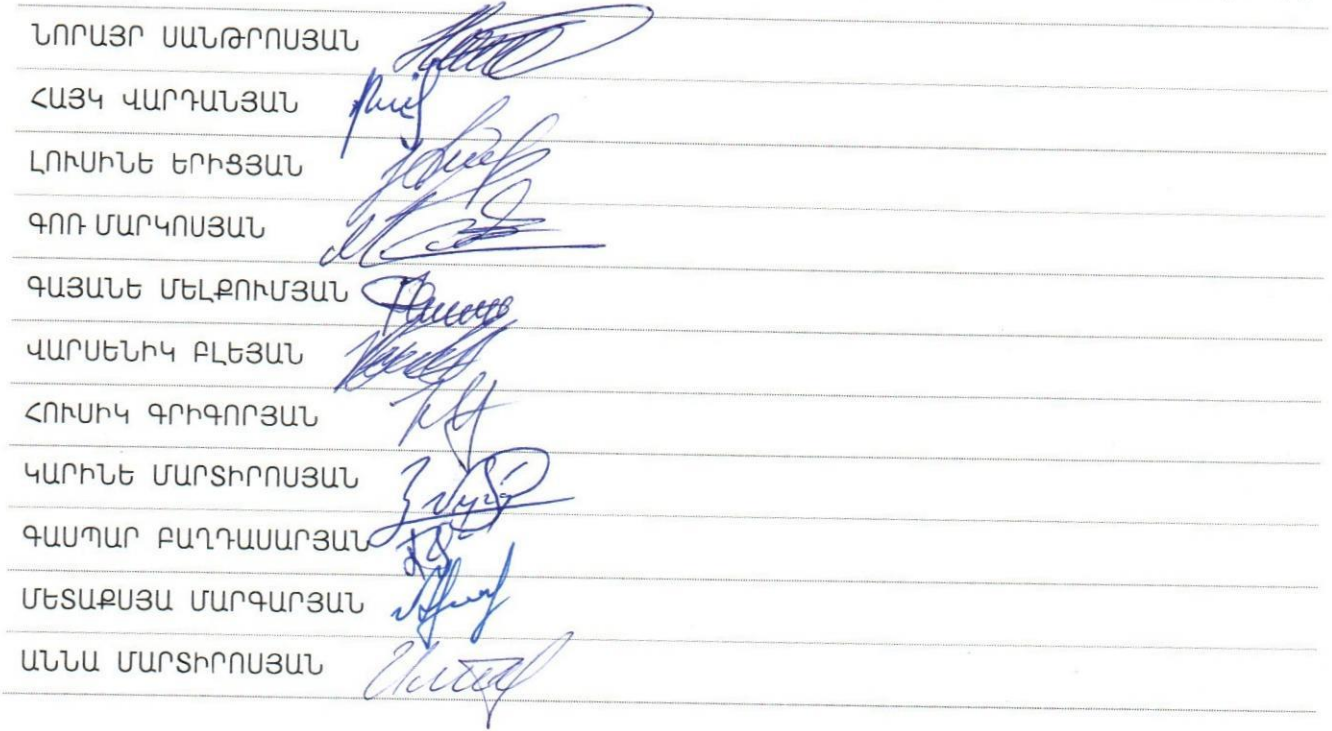 ՆՈՐԱՅՐ ՍԱՆԹՐՈՍՅԱՆ
ՀԱՅԿ ՎԱՐԴԱՆՅԱՆ
ԼՈՒՍԻՆԵ ԵՐԻՑՅԱՆ
ԳՈՌ ՄԱՐԿՈՍՅԱՆ
ԳԱՅԱՆԵ ՄԵԼՔՈՒՄՅԱՆ
ՎԱՐՍԵՆԻԿ ԲԼԵՅԱՆ
ՀՈՒՍԻԿ ԳՐԻԳՈՐՅԱՆ
ԿԱՐԻՆԵ ՄԱՐՏԻՐՈՍՅԱՆ
ԳԱՍՊԱՐ ԲԱՂԴԱՍԱՐՅԱՆ
ՄԵՏԱՔՍՅԱ ՄԱՐԳԱՐՅԱՆ
ԱՆՆԱ ՄԱՐՏԻՐՈՍՅԱՆ